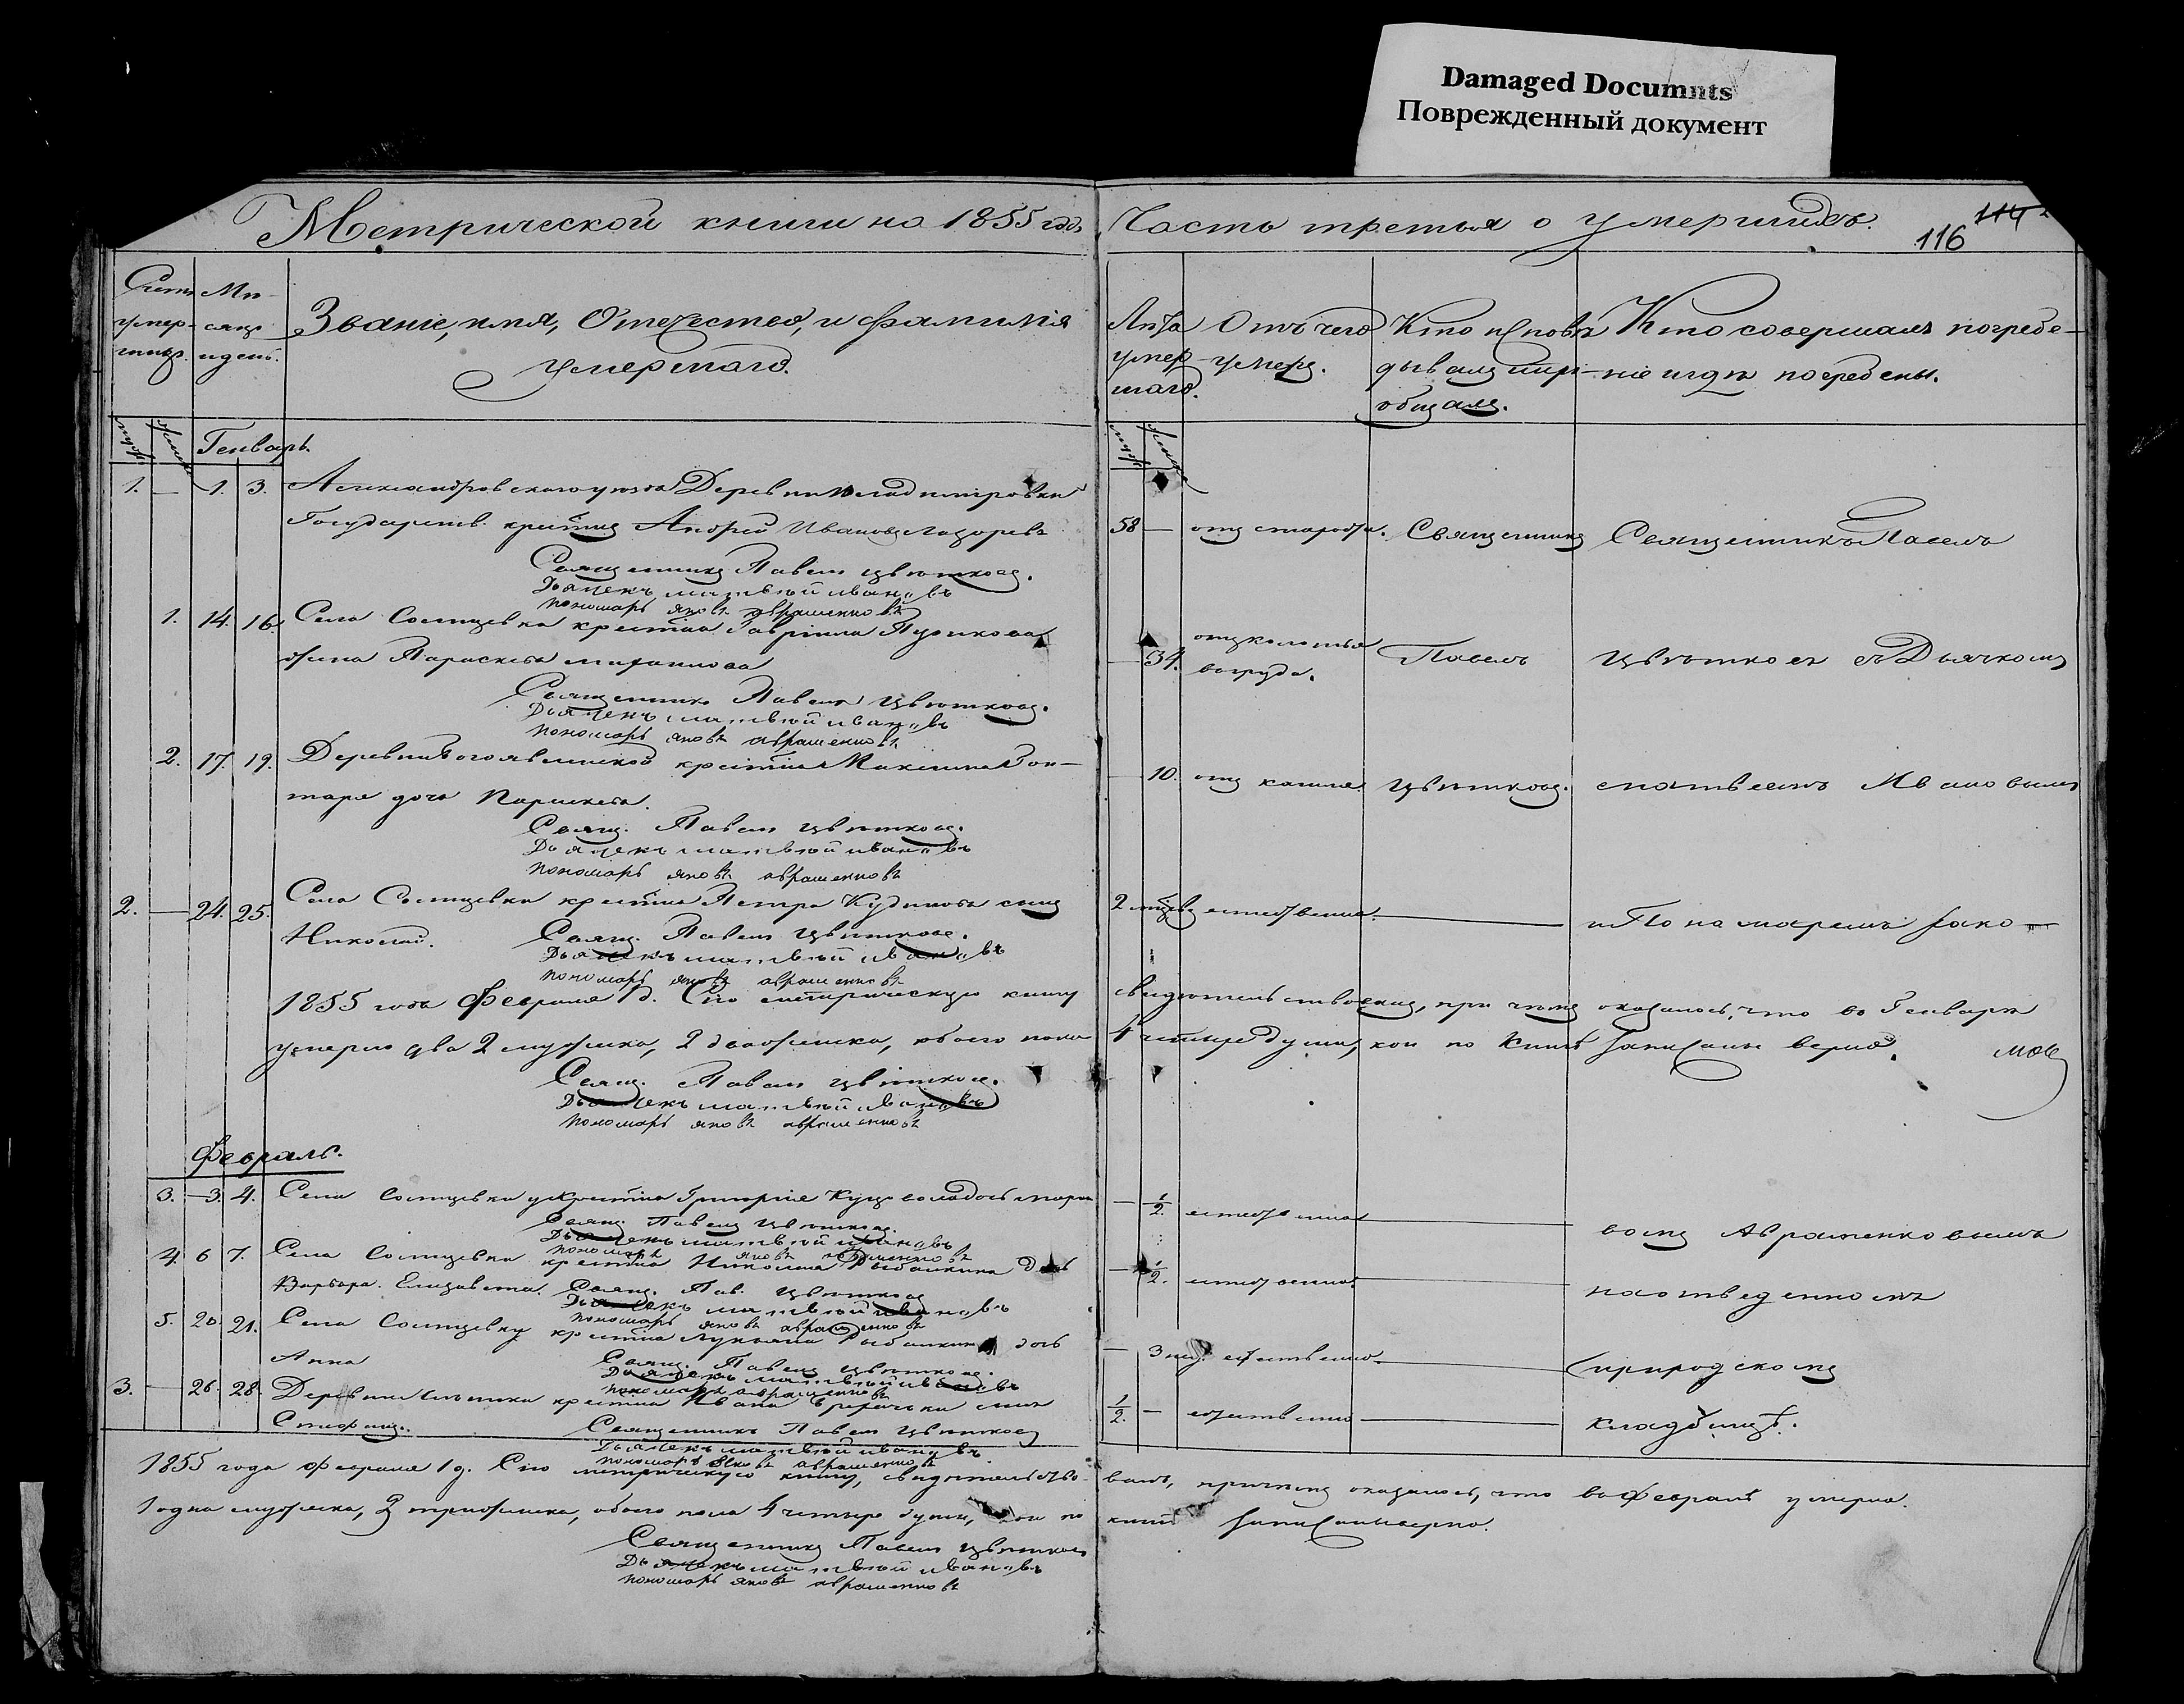 Damaged Documnts
Поврежденный документ
Метрической книги на 1855 годъ
Часть третья о умершихъ.
116
114
Счетъ умер-шихъ.
Мѣ-сяцъ и день.
Званіе, имя, Отечество, и фамилія
умершаго.
Лѣта умер-шаго.
Отъ чего умеръ.
Кто исповѣ-дывалъ и прі-общалъ.
Кто совершалъ погребе-ніе и гдѣ погребены.
Генварь
1. — 1. 3. Александровскаго уѣзда Деревни
Государств. крестья Андрей Ивановъ Лазоревъ
58 — отъ старости. Священникъ Священникъ Павелъ
Священникъ Павелъ Цвѣтковъ.
Дьячекъ матвѣй ивановъ
пономарь яковъ авраменковъ
1. 14. 16. Села Солнцевки крестья Гавріила
жена Параскева
— 34. отъ колотья въ груди. Павелъ Цвѣтковъ съ Дьячкомъ
Священникъ Павелъ Цвѣтковъ.
Дьячекъ матвѣй ивановъ
пономарь яковъ авраменковъ
2. 17. 19. Деревни Богоявленской крестья Максима Гон-
таря дочь Параскева.
— 10. отъ кашля Цвѣтковъ. матвеемъ Ивановымъ
Свящ. Павелъ Цвѣтковъ.
Дьячекъ матвѣй ивановъ
пономарь яковъ авраменковъ
2. — 24. 25. Села Солнцевки крестья Петра Кудинова сынъ
Николай.
2 естественно. — и Пономаремъ Яко-
Свящ. Павелъ Цвѣтковъ.
Дьячекъ матвѣй ивановъ
пономарь яковъ авраменковъ
1855 года Февраля 1 д. Сію метрическую книгу свидѣтельствовалъ, при чемъ оказалось, что въ Генварѣ
умерло два 2 мужеска, 2 два женска, обоего пола 4 четыре души, кои по книгѣ записаны вѣрно.
Свящ. Павелъ Цвѣтковъ.
Дьячекъ матвѣй ивановъ
пономарь яковъ авраменковъ
Февраль.
3. — 3. 4. Села Солнцевки крестья Григорія дочь
— 1/2. естественно — вомъ Авраменковымъ
Свящ. Павелъ Цвѣтковъ.
Дьячекъ матвѣй ивановъ
пономарь яковъ авраменковъ
4. 6 7. Села Солнцевки крестья Николая Рыбалкина дочь
Варвара. Елизавета.
— 1/2. естественно. — на отведенномъ
Свящ. Пав. Цвѣтковъ
Дьячекъ матвѣй ивановъ
пономарь яковъ авраменковъ
5. 20. 21. Села Солнцевки крестья Лукьяна Рыбалкина дочь
Анна
— 3 нед. естественно. — природскомъ
Свящ. Павелъ Цвѣтковъ.
Дьячекъ матвѣй ивановъ
пономарь авраменковъ
3. — 26. 28. Деревни крестья Ивана сынъ
Стефанъ.
1/2. — естественно — кладбищѣ.
Священникъ Павелъ Цвѣтковъ
Дьячекъ матвѣй ивановъ
пономарь яковъ авраменковъ
1855 года Февраля 1 д. Сію метрическую книгу, свидѣтельство-валъ, причемъ оказалось, что въ Февралѣ умерло.
1 одна мужеска, 3 три женска, обоего пола 4 четыре души, кои по книгѣ записаны вѣрно.
Священникъ Павелъ Цвѣтковъ
Дьячекъ матвѣй ивановъ
пономарь яковъ авраменковъ